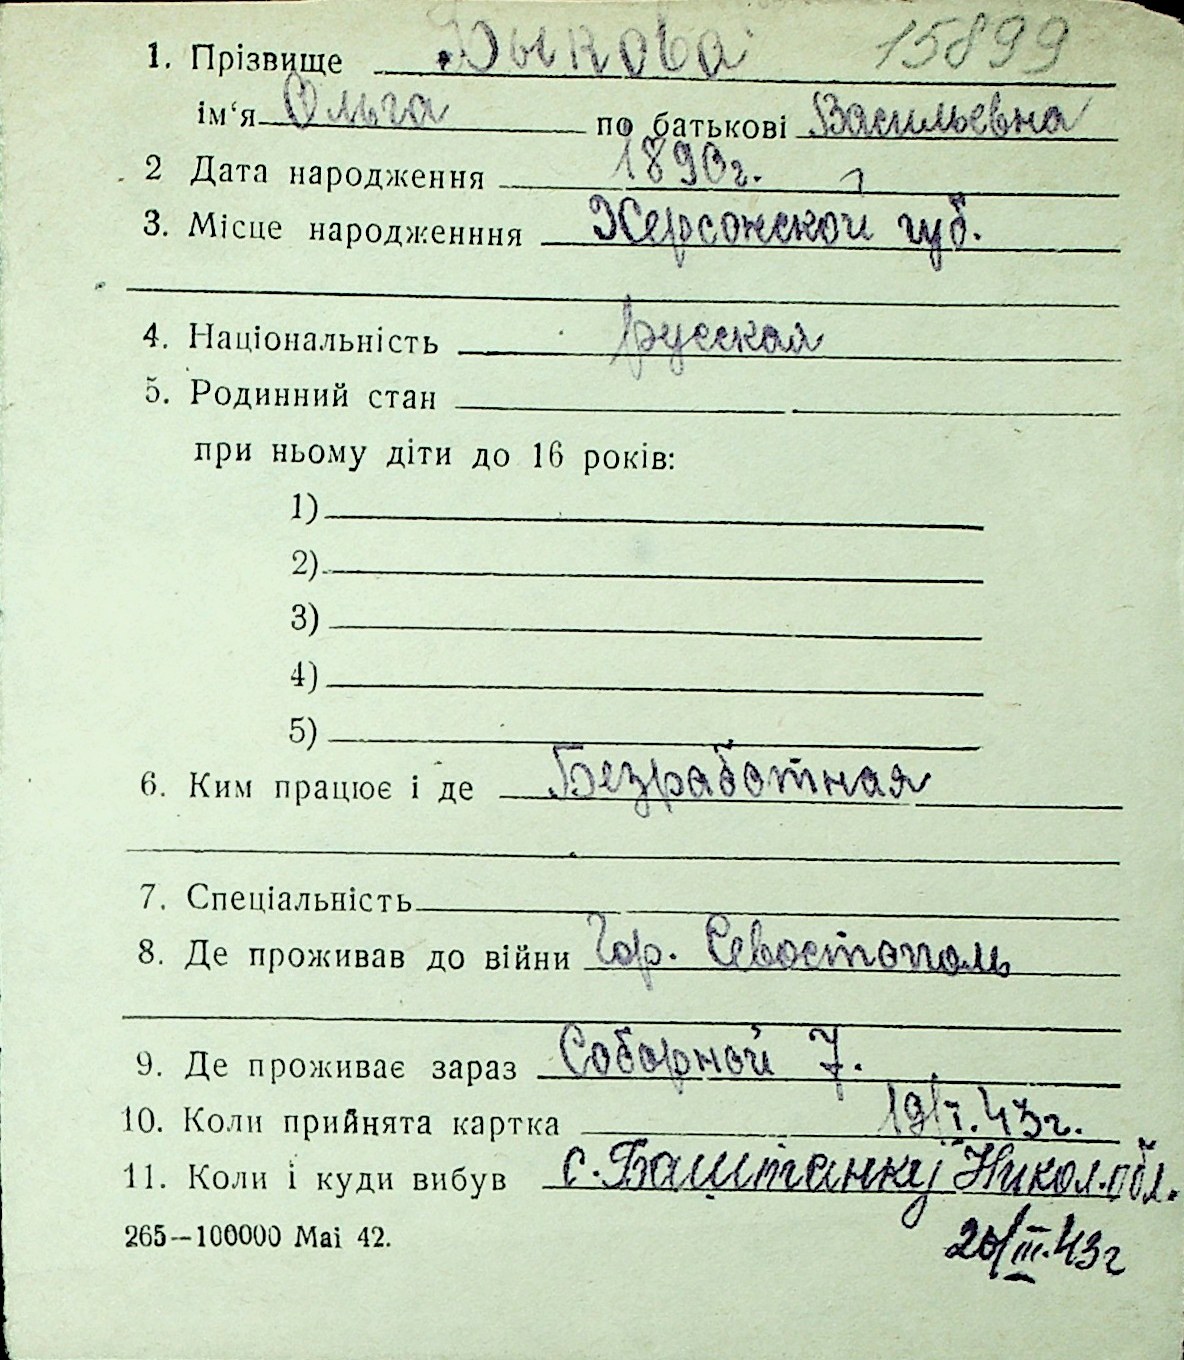 1. Прізвище Быкова 15899
ім'я Ольга по батькові Васильевна
2 Дата народження 1890г.
3. Місце народженння Херсонской губ.
4. Національність русская
5. Родинний стан
при ньому діти до 16 років:
1)
2)
3)
4)
5)
6. Ким працює і де Безработная
7. Спеціальність
8. Де проживав до війни Гор. Севостополь
9. Де проживає зараз Соборной 7.
10. Коли прийнята картка 19/I.43г.
11. Коли і куди вибув с. Баштанку Никол. обл.
265—100000 Mai 42. 20/III.43г